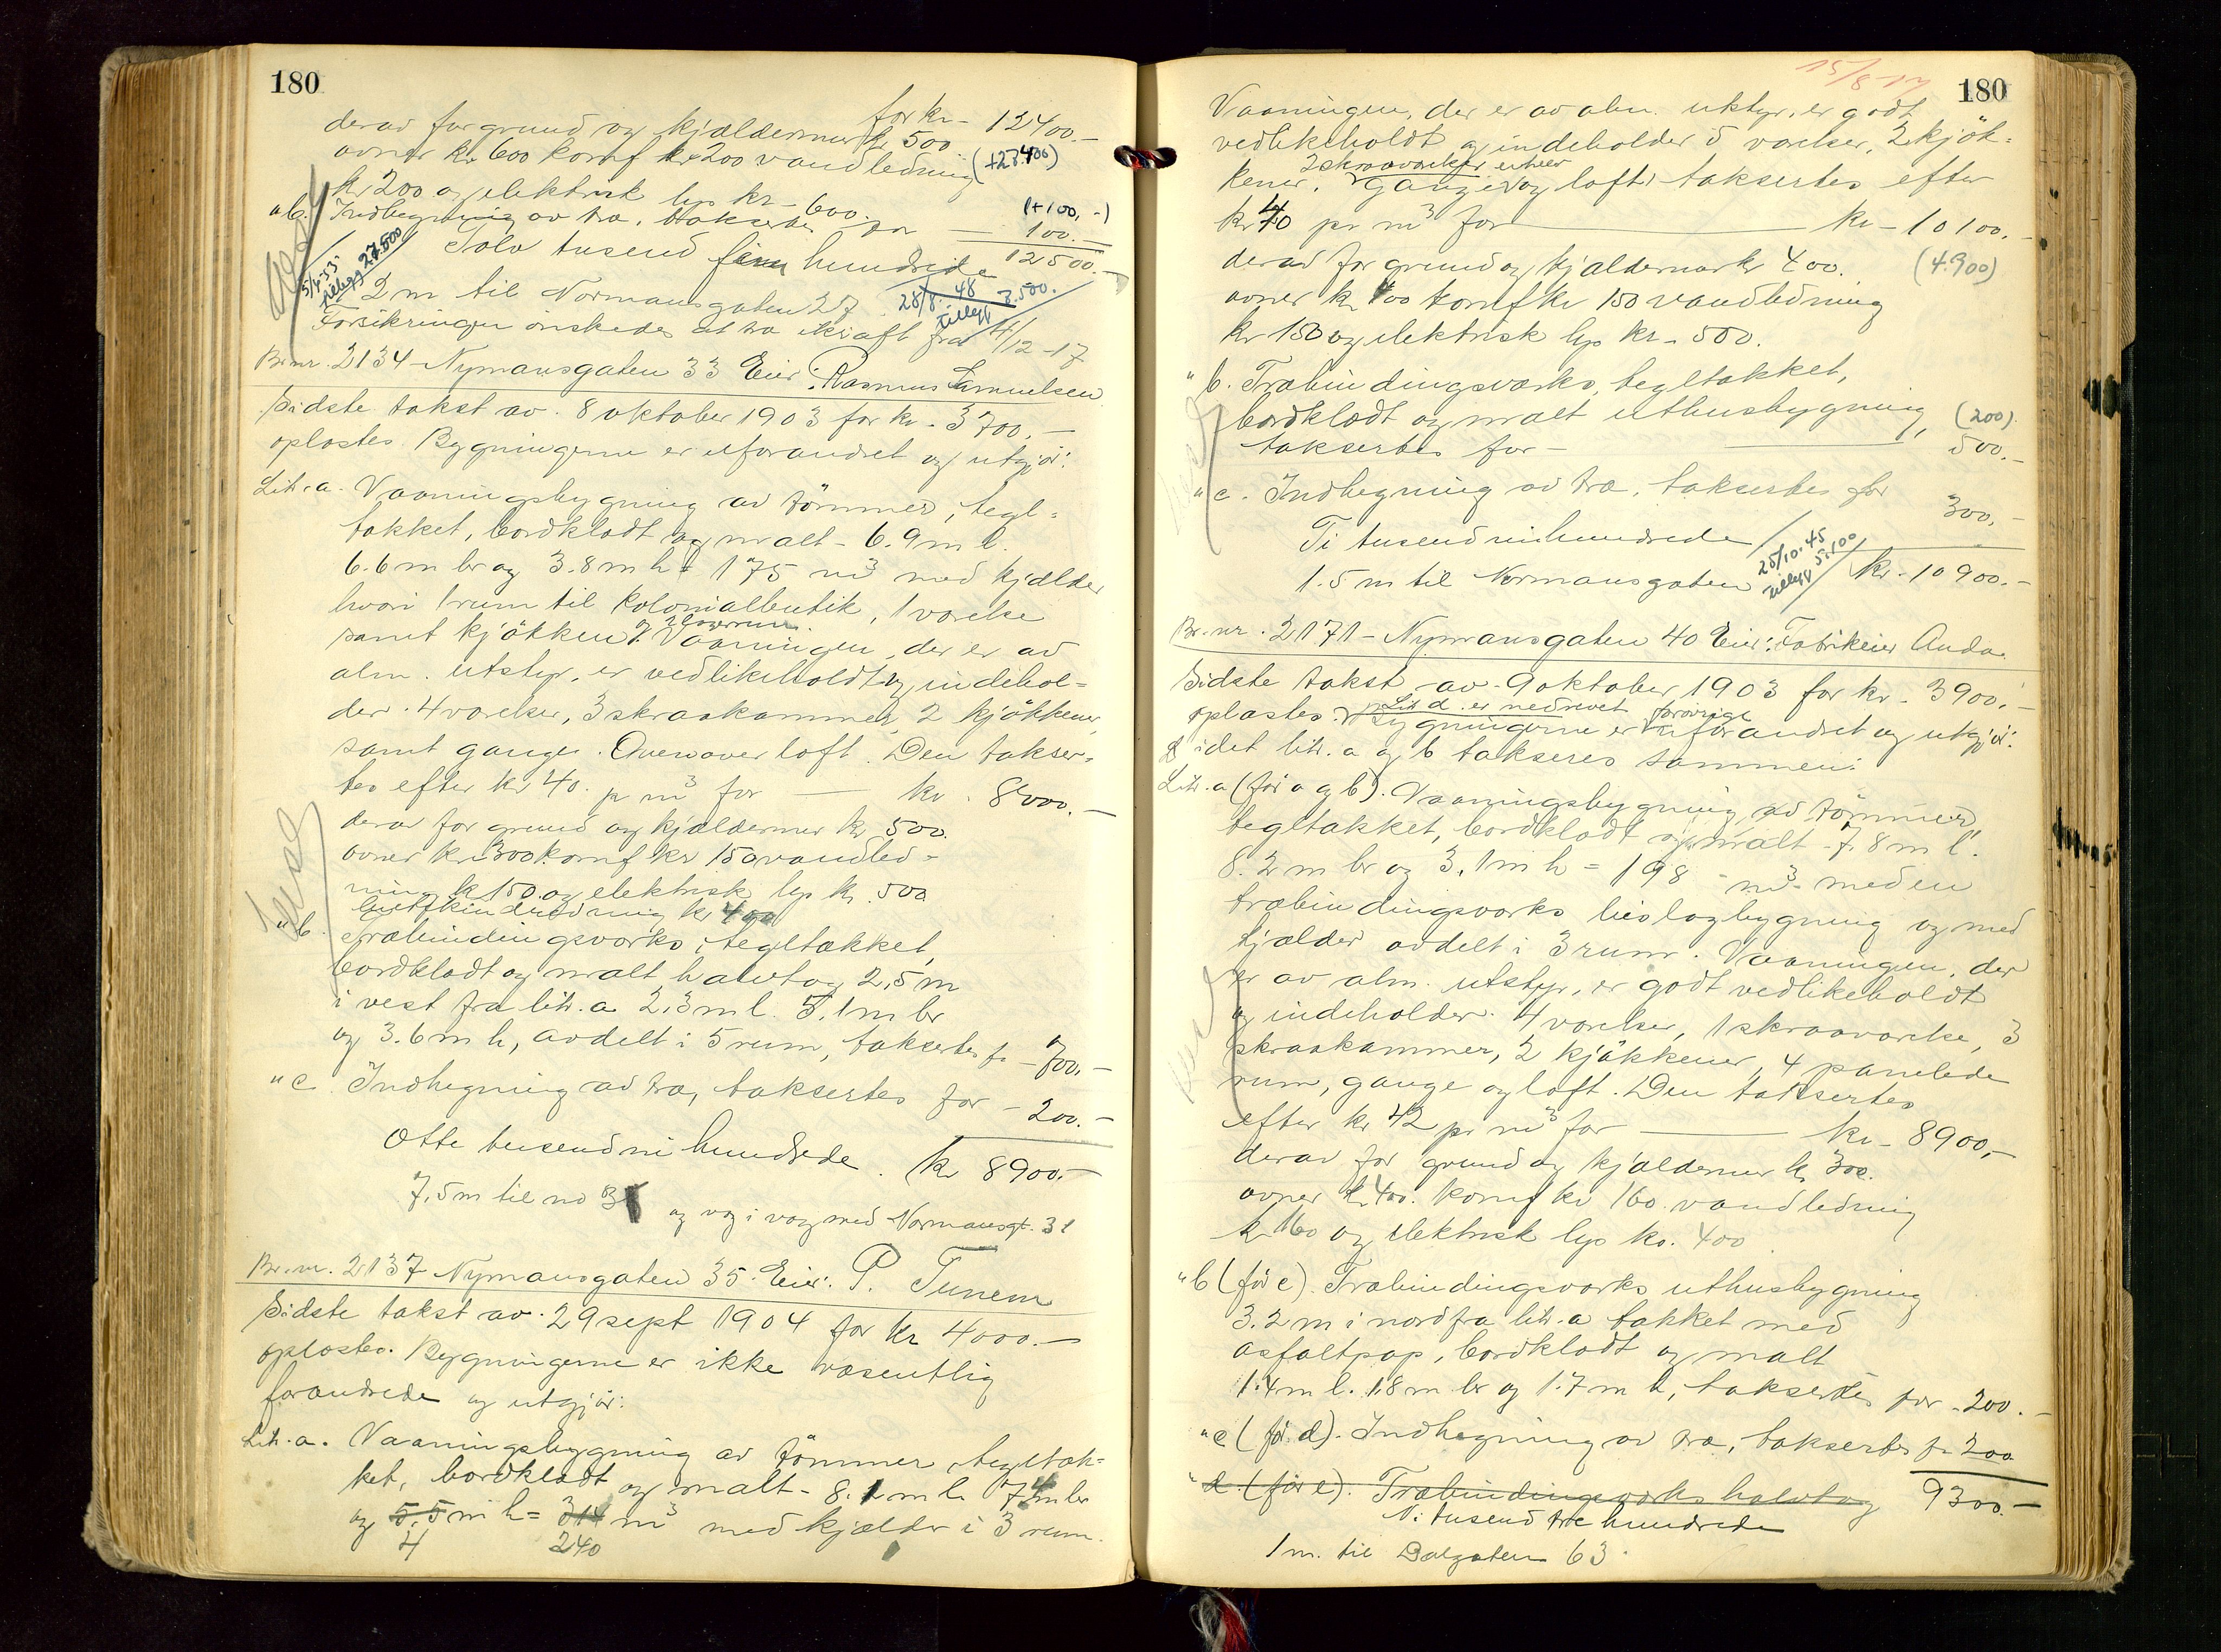 180
for kr - 12400.-
derav for grund og kjældermur kr 500
ovner kr 600 komf kr 200 vandledning (+23.400)
kr 200 og elektrisk lys kr - 600.
" b. Indhegning av træ, takseres for — 100.- (+100,-)
Tolv tusend fem hundrede 12500.-
5/4-55 tillegg 27.500
2 m til Normansgaten 27 28/8.48 tillegg 8.500.
Forsikringen önskedes at træ i kraft fra 4/12-17
Br.nr. 2134 - Nymansgaten 33 Eier: Rasmus Samuelsen
Sidste takst av 8 oktober 1903 for kr. 3700.-
oplöstes. Bygningerne er uforandret og utgjör:
Litr. a. Vaaningsbygning av tömmer, tegl=
tækket, bordklædt og malt - 6.9 m l.
6.6 m br og 3.8 m h = 175 m³ med kjælder
hvori 1 rum til kolonialbutik, 1 værelse
samt kjökken. Vaaningen, der er av
alm. utstyr, er vedlikeholdt og indehol=
der 4 værelser, 3 skraakammer, 2 kjökkener,
samt gange. Ovenover loft. Den takser=
tes efter kr 40. pr m³ for — kr. 8000.-
derav for grund og kjældermur kr 500.
ovner kr 300 komf kr 150 vandled=
ning kr 150 og elektrisk lys kr 500
" b. Træbindingsværks, tegltækket,
bordklædt og malt halvtag 2,5 m
i vest fra litr. a 2,3 m l. 5,1 m br
og 3.6 m h, avdelt i 5 rum, taksertes fr - 700.-
" c. Indhegning av træ, taksertes for - 200.-
Otte tusend ni hundrede. kr 8900.-
7,5 m til no 31 og væg i væg med Normansgt. 31
Br.nr. 2137 Nymansgaten 35. Eier: P. Tunem
Sidste takst av 29 sept 1904 for kr 4000.-
oplöstes. Bygningerne er ikke væsentlig
forandrede og utgjör:
Litr. a. Vaaningsbygning av tömmer, tegltæk=
ket, bordklædt og malt - 8.1 m l. 7.4 m br
og 5.5 m h = 314 m³ med kjælder i 3 rum.
4 240
15/8-17
180
Vaaningen, der er av alm. utstyr, er godt
vedlikeholdt og indeholder 5 værelser, 2 kjök=
2 skraaværelser
kener, gange og loft. taksertes efter
kr 40 pr m³ for — kr - 10100.-
derav for grund og kjældermur kr 400. (4.900)
ovner kr 400 komf kr 150 vandledning
kr 150 og elektrisk lys kr - 500.
" b. Træbindingsværks, tegltækket,
bordklædt og malt uthusbygning, (200)
taksertes for — 500.-
" c. Indhegning av træ, taksertes for 300.-
Ti tusend nihundrede
25/10.45 tillegg 5.100
1.5 m til Normansgaten kr. 10900.-
Br.nr. 2171 - Nymansgaten 40 Eier: Fabrikeier Anda.
Sidste takst av 9 oktober 1903 for kr. 3900.-
Litr d. er nedrevet forövrig
oplöstes. Bygningerne er uforandret og utgjör:
idet litr. a og b takseres sammen:
Litr. a (för a og b). Vaaningsbygning, av tömmer,
tegltækket, bordklædt og malt - 7.8 m l.
8.2 m br og 3.1 m h = 198 m³ med en
træbindingsværks bislagbygning og med
kjælder avdelt i 3 rum. Vaaningen, der
er av alm. utstyr, er godt vedlikeholdt
og indeholder 4 værelser, 1 skraaværelse, 3
skraakammer, 2 kjökkener, 4 panelede
rum, gange og loft. Den taksertes
efter kr 42 pr m³ for — kr - 8900,-
derav for grund og kjældermur kr 300.
ovner kr 400. komf kr 160. vandledning
kr 160 og elektrisk lys kr. 400
" b (för c). Træbindingsværks uthusbygning
3.2 m i nord fra litr. a tækket med
asfaltpap, bordklædt og malt
1.4 m l. 1.8 m br og 1.7 m h, taksertes for - 200.-
" c (för d). Indhegning av træ, taksertes fr 200
" d. (för e). Træbindingsværks halvtag 9300.-
Ni tusend tre hundrede
1 m. til Dalgaten 63.